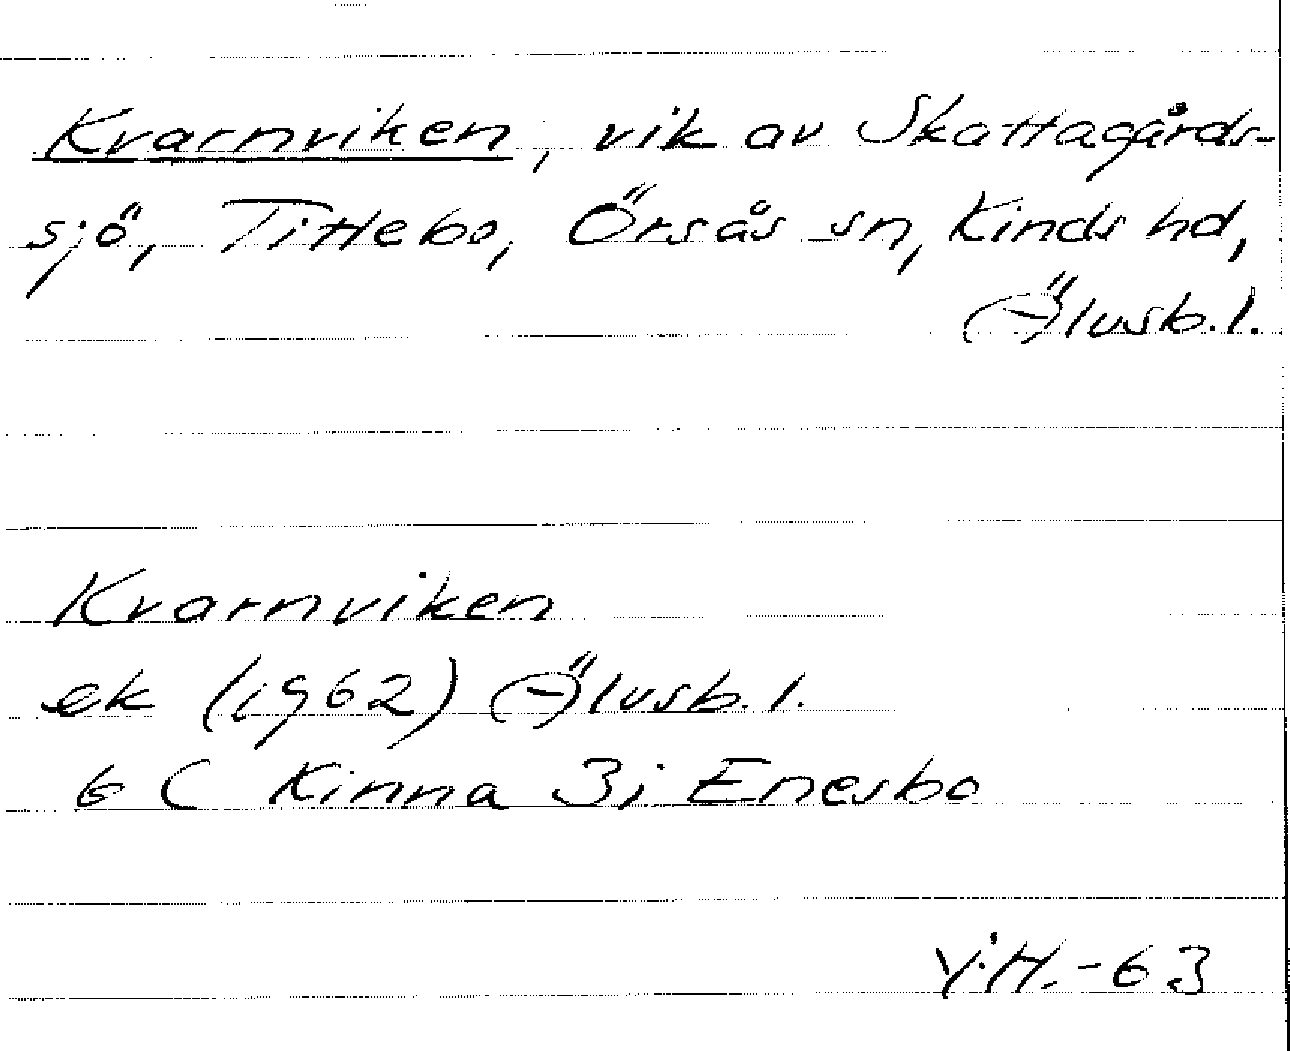 Kvarnviken, vik av Skattagårds-
sjö, Tittebo, Örsås sn, Kinds hd,
Älvsb.l.
Kvarnviken
ek (1962) Älvsb.l.
6 C Kinna 3j Enesbo
Y.H. -63